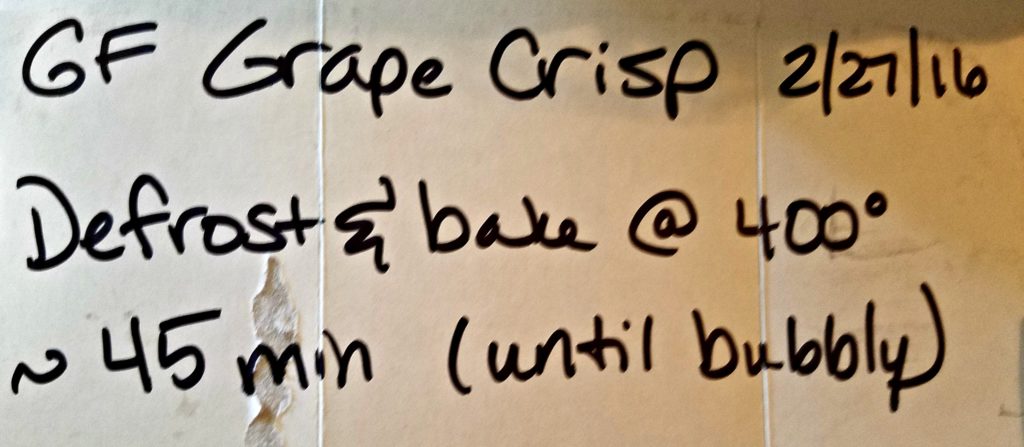 GF Grape Crisp 2/27/16
Defrost & bake @ 400°
~ 45 min (until bubbly)